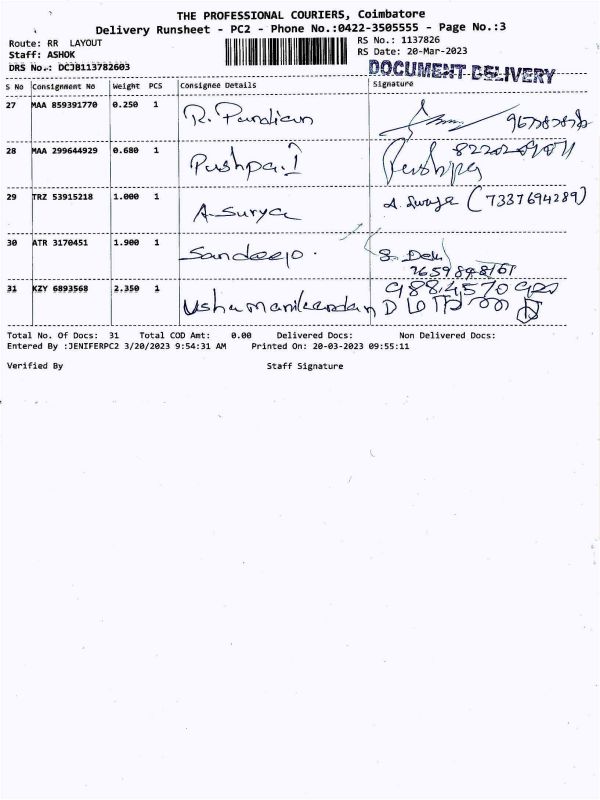 THE PROFESSIONAL COURIERS, Coimbatore
Delivery Runsheet - PC2 - Phone No.:0422-3505555 - Page No.:3
Route: RR LAYOUT RS No.: 1137826
Staff: ASHOK RS Date: 20-Mar-2023
DRS No.: DCJB113782603 DOCUMENT DELIVERY
S No Consignment No Weight PCS Consignee Details Signature
27 MAA 859391770 0.250 1 R. Pandian
28 MAA 299644929 0.680 1 Pushpa. I Pushpa
29 TRZ 53915218 1.000 1 A. Surya (7337694289)
30 ATR 3170451 1.900 1 Sandeep.
31 KZY 6893568 2.350 1 Usha manikandan
Total No. Of Docs: 31 Total COD Amt: 0.00 Delivered Docs: Non Delivered Docs:
Entered By :JENIFERPC2 3/20/2023 9:54:31 AM Printed On: 20-03-2023 09:55:11
Verified By Staff Signature